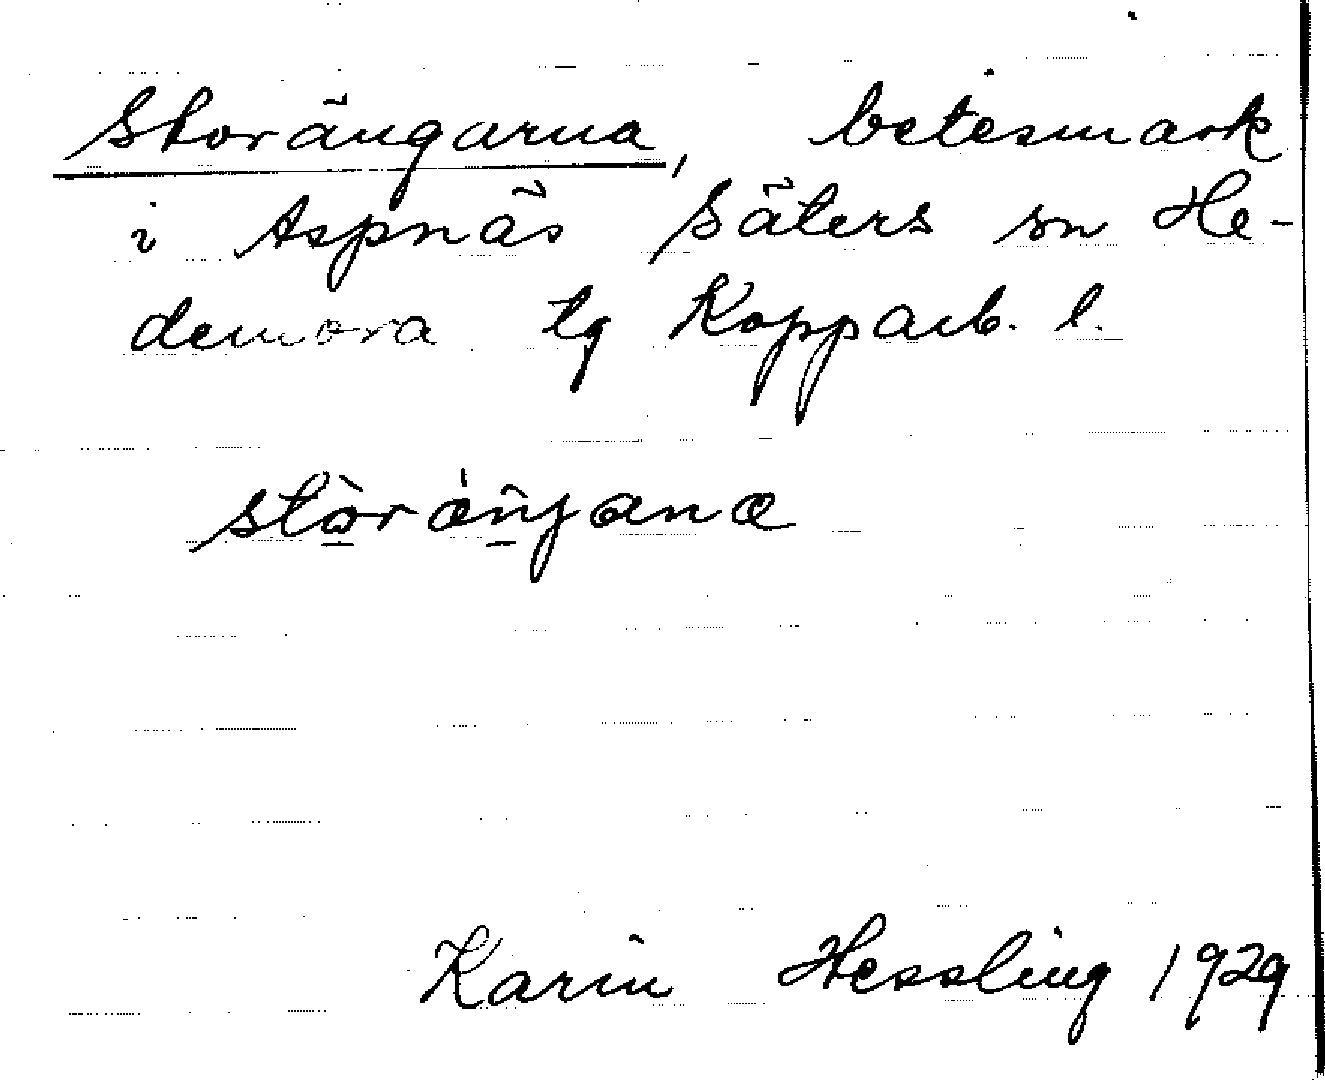 Storängarna, betesmark
i Aspnäs Säters sn He-
demora tg Kopparb. l.
Karin Hessling 1929